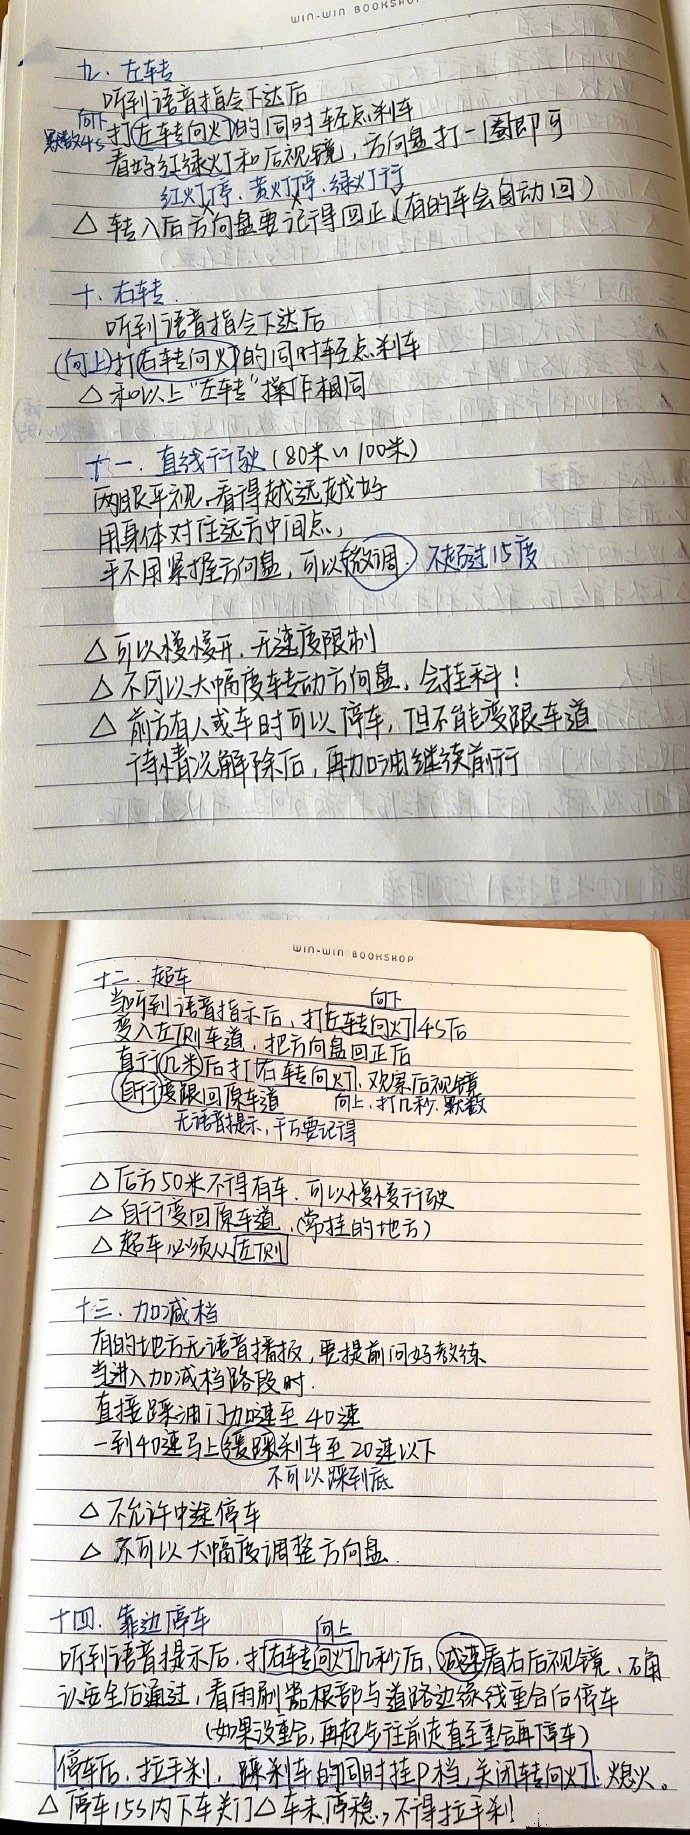 WIN-WIN BOOKSHOP
九. 左转
听到语音指令下达后
向下
默数4s
打左转向灯的同时轻点刹车
看好红绿灯和后视镜, 方向盘打一圈即可
红灯停. 黄灯停. 绿灯行
△ 转入后方向盘要记得回正 (有的车会自动回)
十. 右转.
听到语音指令下达后
(向上) 打右转向灯的同时轻点刹车
△ 和以上“左转”操作相同
十一. 直线行驶 (80米~100米)
两眼平视, 看得越远越好
用身体对住远方中间点,
手不用紧握方向盘, 可以微调. 不超过15度
△ 可以慢慢开, 无速度限制
△ 不可以大幅度转动方向盘, 会挂科!
△ 前方有人或车时可以停车, 但不能变跟车道
待情况解除后, 再加油继续前行
WIN-WIN BOOKSHOP
十二. 超车
向下
当听到语音指示后, 打左转向灯4S后
变入左侧车道, 把方向盘回正后
直行几米后打右转向灯, 观察后视镜
自行变跟回原车道 向上, 打几秒. 默数
无语音提示, 千万要记得
△ 后方50米不得有车. 可以慢慢行驶
△ 自行变回原车道. (常挂的地方)
△ 超车必须从左侧
十三. 加减档
有的地方无语音播报, 要提前问好教练
当进入加减档路段时.
直接踩油门加速至40速
一到40速马上缓踩刹车至20速以下
不可以踩到底
△ 不允许中途停车
△ 不可以大幅度调整方向盘.
十四. 靠边停车
向上
听到语音提示后, 打右转向灯几秒后, 减速看右后视镜,
认安全后通过, 看雨刷器根部与道路边缘线重合后停车
(如果没重合, 再起步往前走直至重合再停车)
停车后, 拉手刹, 踩刹车的同时挂P档, 关闭转向灯, 熄火。
△ 停车15S内下车关门 △ 车未停稳, 不得拉手刹!